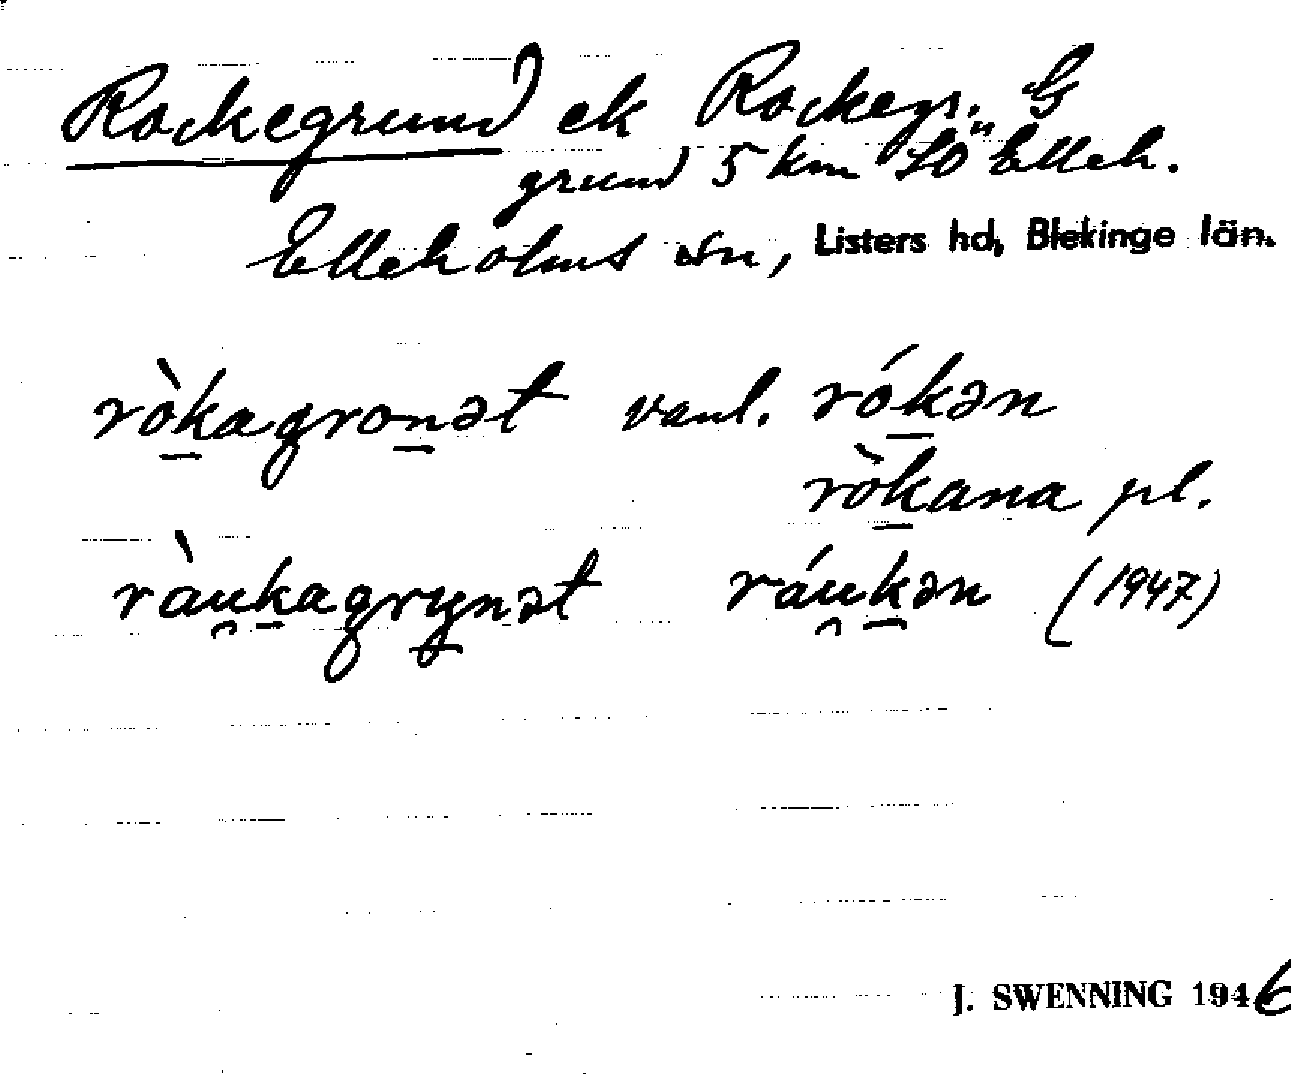 Rockegrund ek Rockegr. G
grund 5 km SÖ Elleh.
Elleholms sn, Listers hd, Blekinge län.
ròk̲agron̲ət vanl. rók̲ən
ròk̲ana pl.
ràu̯k̲agryn̲ət ráu̯k̲ən (1947)
J. SWENNING 1946